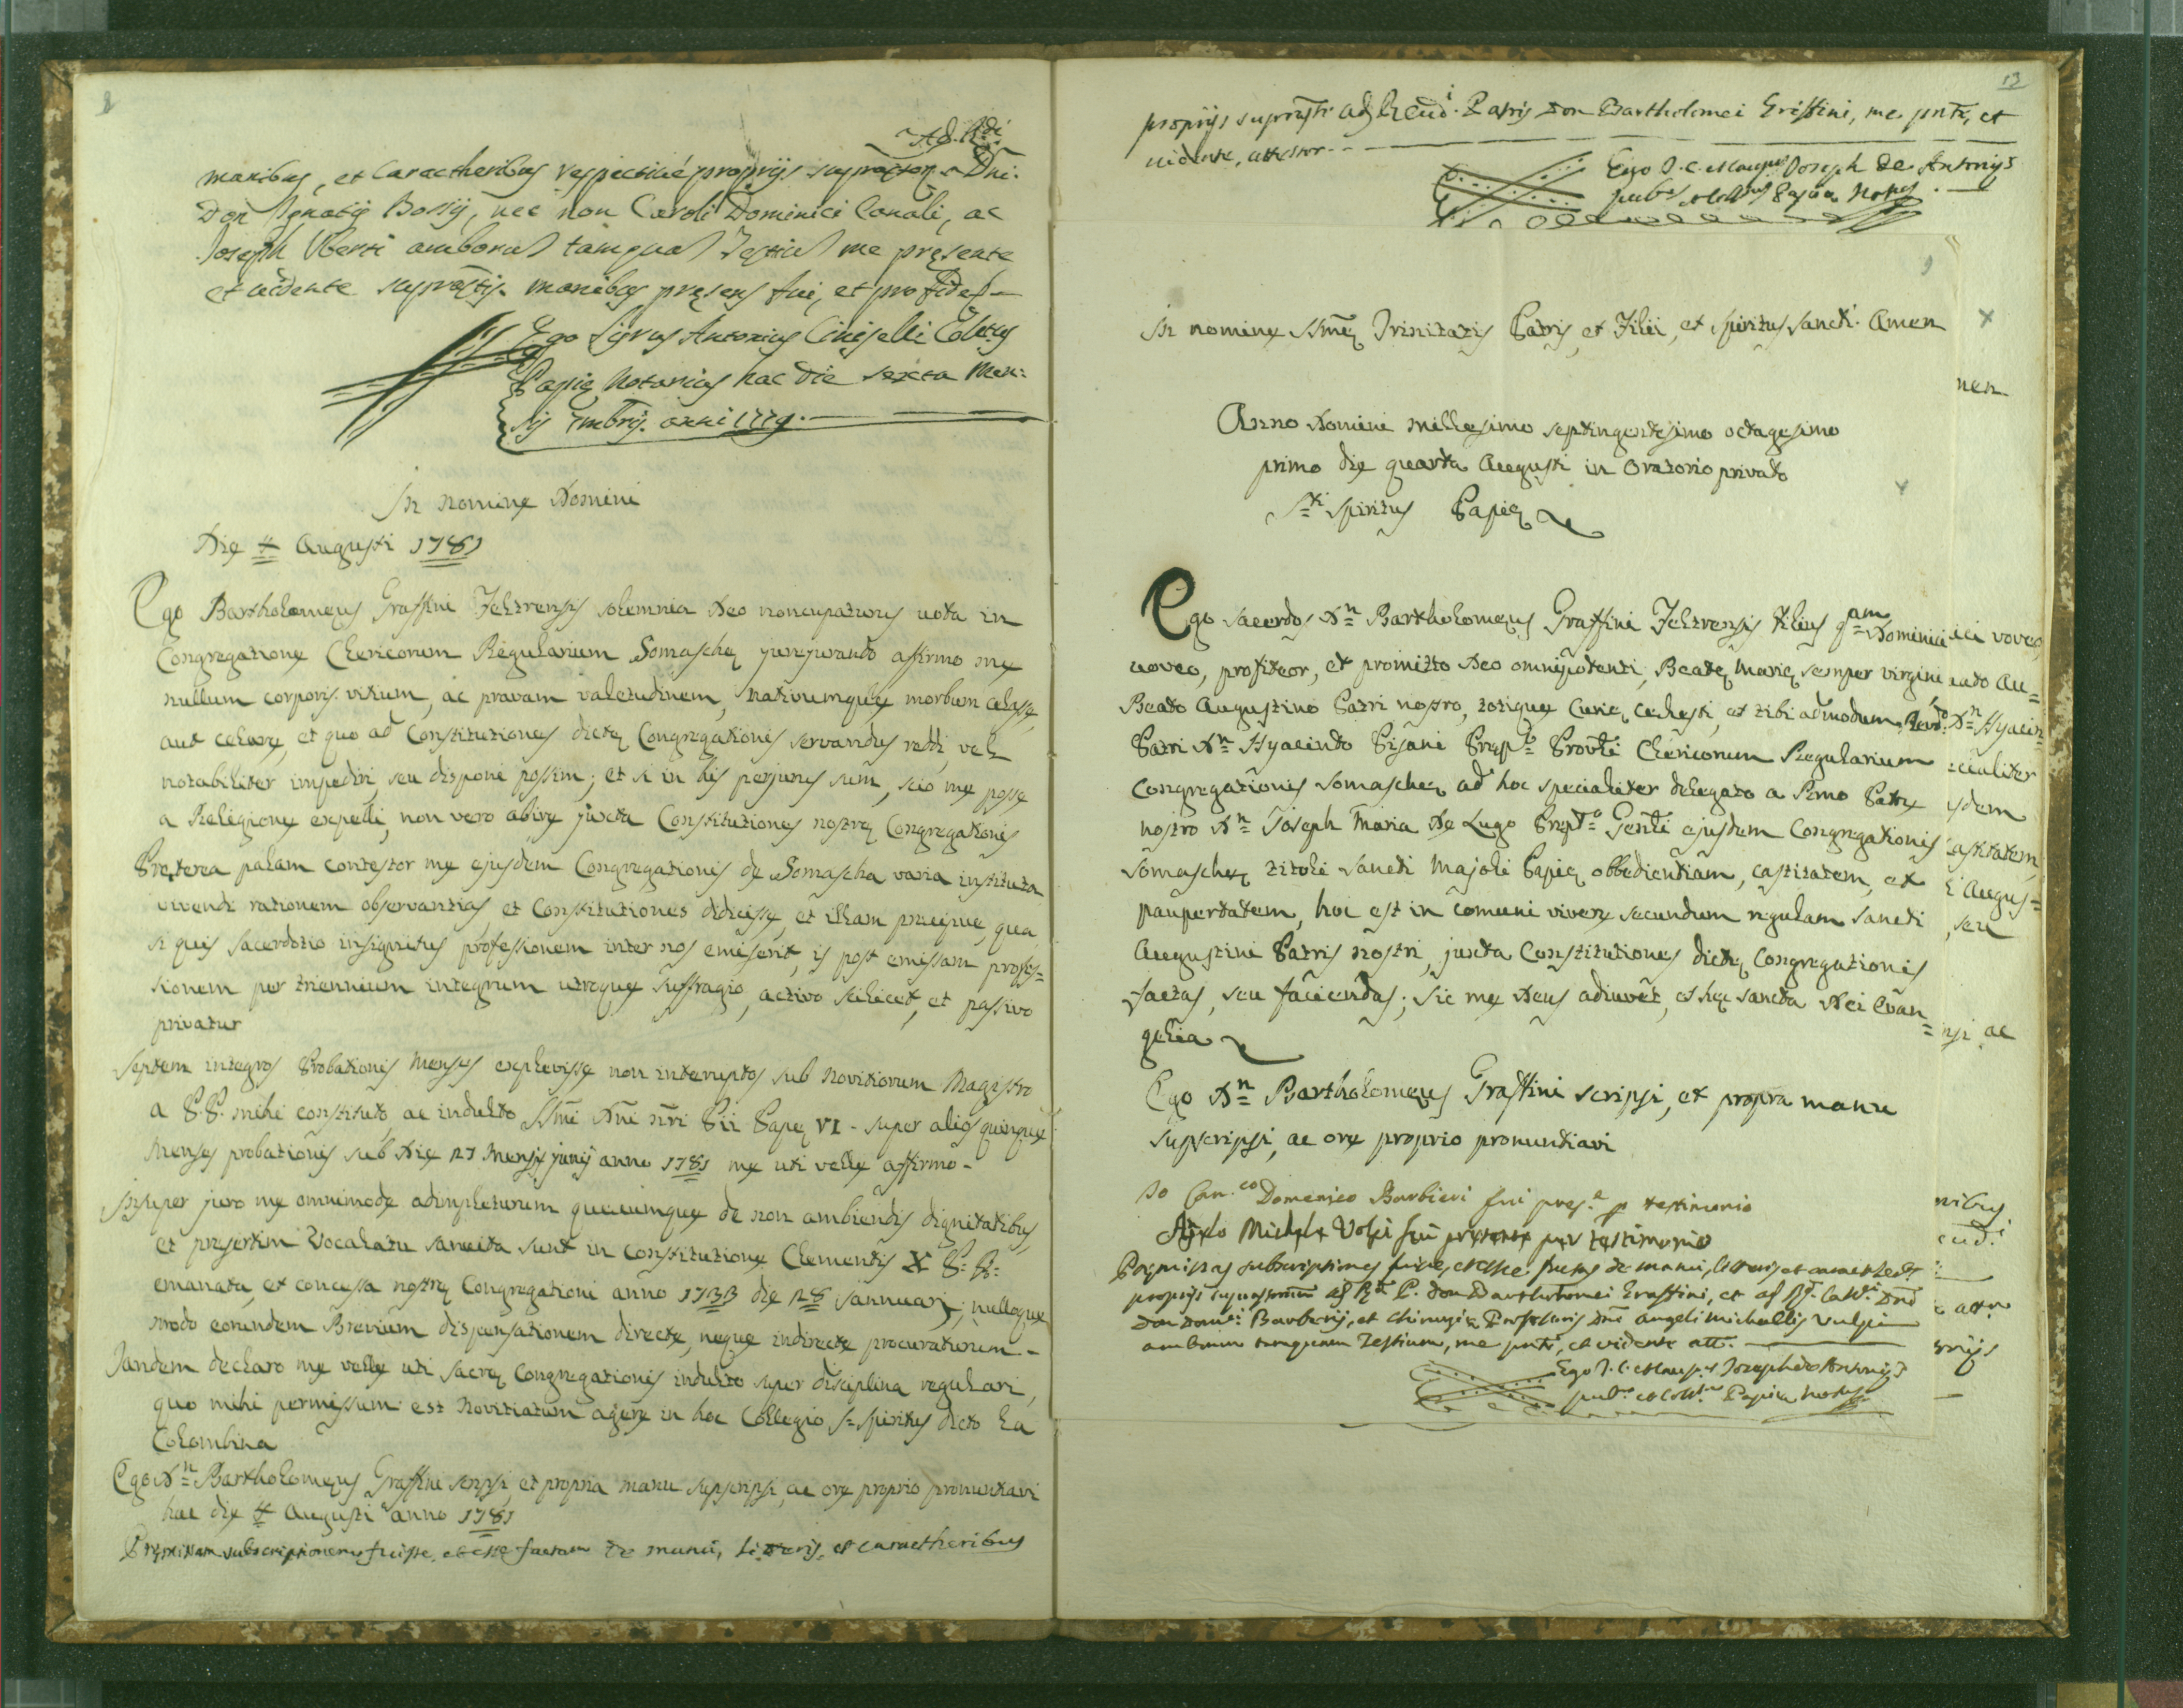 Ad. Rdi.
manibus, et Caractheribus respectivé proprijs supraxtor. Dni.
Don Ignatij Bossij, nec non Caroli Dominici Canali, ac
Joseph Uberti amborum tamquam Testium me pręsente
et vidente supraxtis manibus pręsens fui, et pro fide
Ego Sigrus Antonius Ciniselli Collus
Papię Notarius hac die sexta Men:
sis 7mbris anni 1779.
In nomine Domini
Die 4 Augusti 1781
Ego Bartholomeus Graffini Feltrensis solemnia Deo noncupaturus vota in
Congregatione Clericorum Regularium Somaschę jurejurando affirmo me
nullum corporis vitium, ac pravam valetudinem, nativumque morbum celasse,
aut celare, et quo ad Constitutiones dictę Congregationis servandas reddi, vel
notabiliter impediri, seu disponi possim; et si in his perjurus sum, scio me posse
a Religione expelli, non vero abire juxta Constitutiones nostrę Congregationis
Pręterea palam contestor me ejusdem Congregationis de Somascha varia instituta
vivendi rationem observantias, et Constitutiones didicisse, et illam pręcipue, qua
si quis sacerdotio insignitus professionem inter nos emiserit, is post emissam profes=
sionem per triennium integrum utroque suffragio, activo scilicet, et passivo
privatur
Septem integros Probationis Menses explevisse non interruptos sub Novitiorum Magistro
a P.P. mihi constituto, ac indulto SSmi Dni nri Pii Papę VI - super alios quinque
Menses probationis sub Die 27 Mensis junij anno 1781 me uti velle affirmo -
Insuper juro me omnimode adimpleturum quęcumque de non ambiendis dignitatibus,
et pręsertim Vocalatu sancita sunt in constitutione Clementis X P. P.
emanata, et concessa nostrę Congregationi anno 1733 die 28 Jannuarj; nulloque
modo eorumdem Brevium dispensationem directe, neque indirecte procuraturum -
Tandem declaro me velle uti sacrę Congregationis indulto super disciplina regulari,
quo mihi permissum est Novitiatum agere in hoc Collegio S. Spiritus dicto la
Colombina
Ego Dn Bartholomeus Graffini scripsi, et propria manu supscripsi, ac ore proprio pronuntiavi
hac die 4 Augusti anno 1781
Pręmissam subscriptionem fuisse, et esse factam de manu, Literis, et caractheribus
12
proprijs suprascti adm Rend.i Patris Don Bartholomei Griffini, me pnte, et
vidente, attestor.
Ego J. C. Joseph De Antonijs
pubs Papiæ Notus
In nomine SSmę Trinitatis Patris, et Filii, et Spiritus Sancti. Amen
nen
Anno Domini millesimo septingentesimo octagesimo
primo die quarta Augusti in Oratorio privato
Sti Spiritus Papię
Ego sacerdos Dn Bartholomeus Graffini Feltrensis filius qam Dominici
voveo, profiteor, et promitto Deo omnipotenti, Beatę Marię semper virgini
Beato Augustino Patri nostro, totique Curię cęlesti, et tibi admodum Revdo
Patri Dn Hyacinto Pisani Prępto Provli Clericorum Regularium
Congregationis Somaschę ad hoc specialiter delegato a Rmo Patre
nostro Dn Joseph Maria De Lugo Prępto Genli ejusdem Congregationis
Somaschę tituli Sancti Majoli Papię obbedientiam, castitatem, et
paupertatem, hoc est in comuni vivere secundum regulam Sancti
Augustini Patris nostri, juxta Constitutiones dictę Congregationis
factas, seu faciendas; sic me Deus adiuvet, et hęc sancta Dei Evan=
gelia
Ego Dn Bartholomeus Graffini scripsi, et propra manu
supscripsi, ac ore proprio pronuntiavi
Io Can.co Domenico Barbieri fui pres.e p testimonio
Michele Volpi fui presente per testimonio
Pręmissas subscriptiones fuisse, et esse factas de manu, litteris, et caracther
proprijs ad Rdi P. Don Bartholomei Graffini, et ad Rdi Cani Dni
Don Domi Barberij, et Chirurgię Professoris Dni Angeli Michaellis Vulpi
amborum tamquam Testium, me pnte, et vidente att.
Ego J. C. Joseph de Antonijs
pubs Papiæ Notus
ici voveo,
Au=
Dn Hyacin=
ecialiter
sdem
castitatem,
i Augus=
seu
nsi ac
nibus
end.i